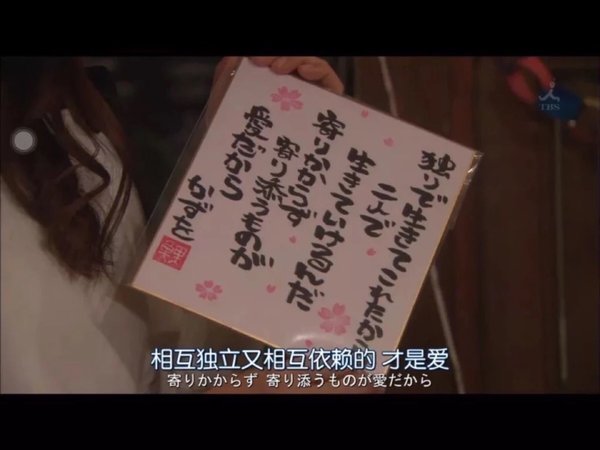 TBS
独りで生きてこれたから
二人で
生きていけるんだ
寄りかからず
寄り添うものが
愛だから
かずと
相互独立又相互依赖的 才是爱
寄りかからず 寄り添うものが愛だから